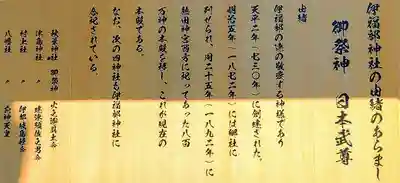 伊福部神社の由緒のあらまし
御祭神 日本武尊
由緒
伊福部の連の敬愛する神様であり
天平二年(七三〇年)に創建された。
明治五年(一八七二年)には郷社に
列せられ、同二十五年(一八九二年)に
熱田神宮西方に祀ってあった八百
万神の本殿を移し、これが現在の
本殿である。
なお、次の四神社も伊福部神社に
合祀されている。
秋葉神社 御祭神 火之迦具土命
津島神社 〃 建速須佐之男命
村上社 〃
八幡社 〃 応神天皇